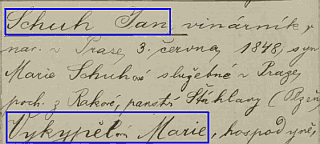 Schuh Jan, vinárník,
nar. v Praze, 3. června, 1848, syn
Marie Schuhové služebné v Praze,
poch. z Rakové, panství Štáhlavy (Plzeň
Vykypělová Marie, hospodyně,